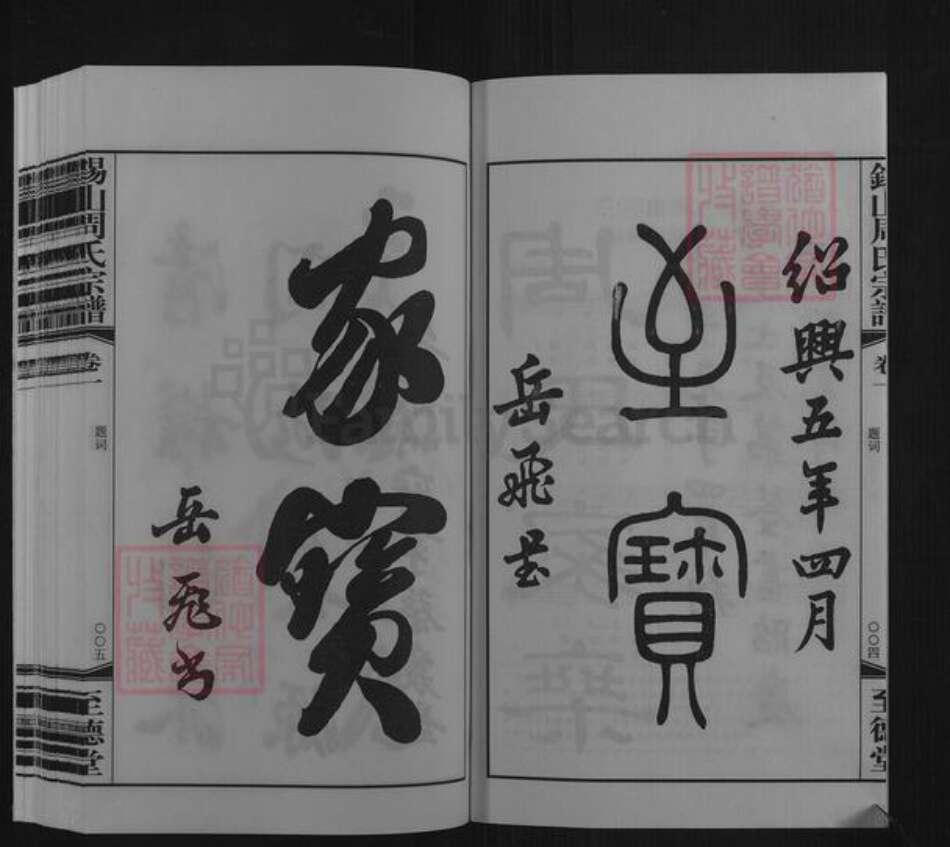 錫山周氏宗譜
卷一
题词
〇〇四
至德堂
绍興五年四月
至寶
岳飛书
家寶
岳飛书
錫山周氏宗譜
卷一
题词
〇〇五
至德堂
FamilySearch